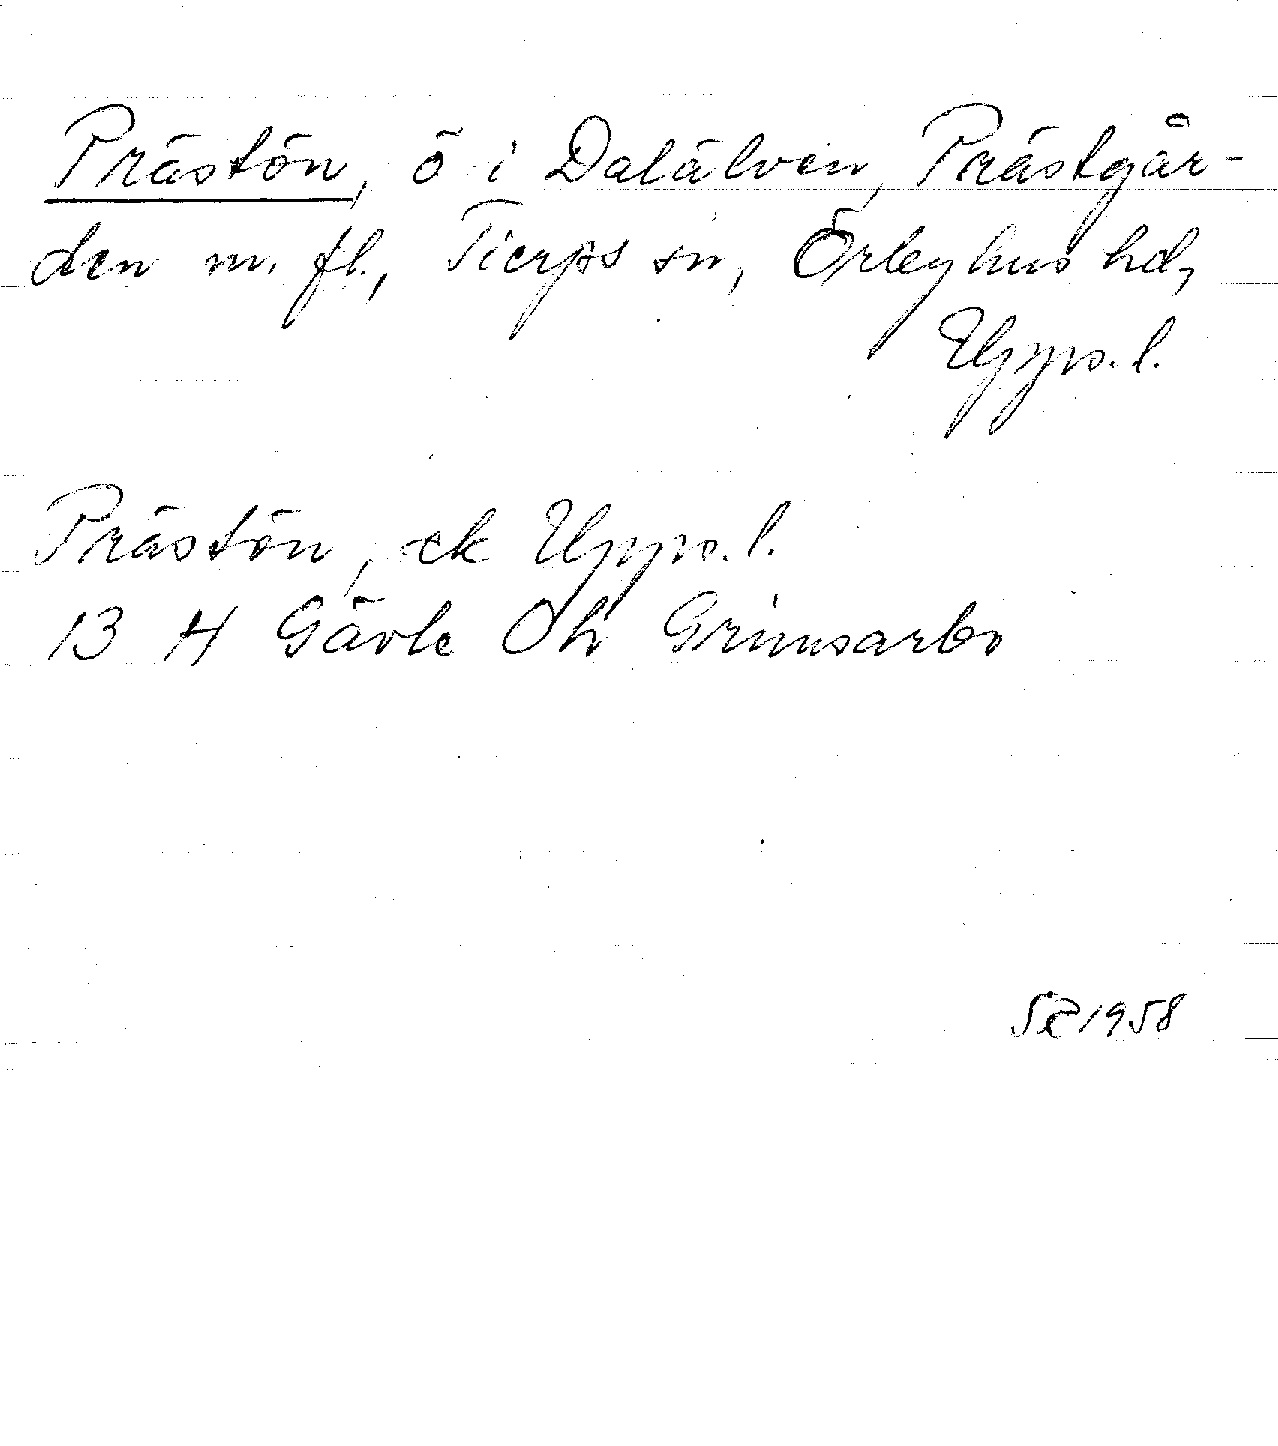 Prästön, ö i Dalälven, Prästgår-
den m. fl., Tierps sn, Örbyhus hd,
Upps. l.
Prästön, ek Upps. l.
13 H Gävle Grimsarbo
1958